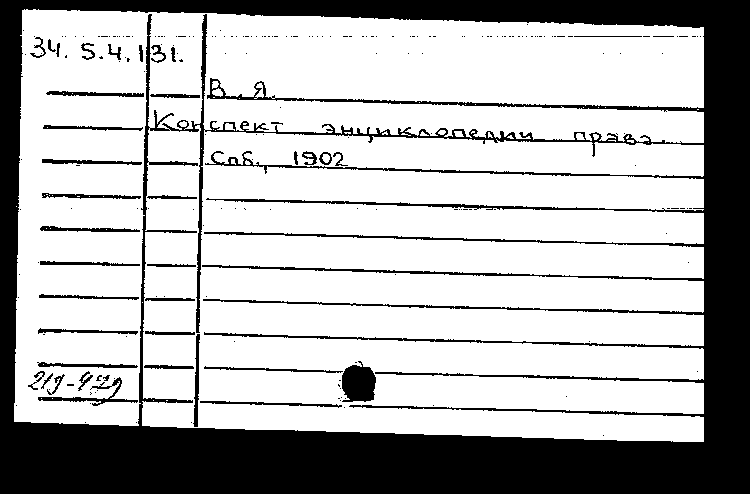 34. 5.4.131.
В. Я.
Конспект энциклопедии права.
Спб., 1902